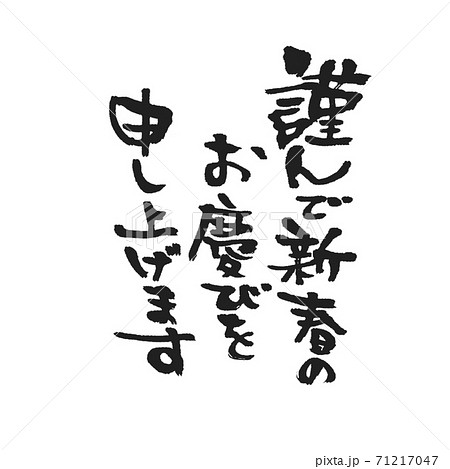 謹んで新春の
お慶びを
申し上げます
pixta.jp - 71217047